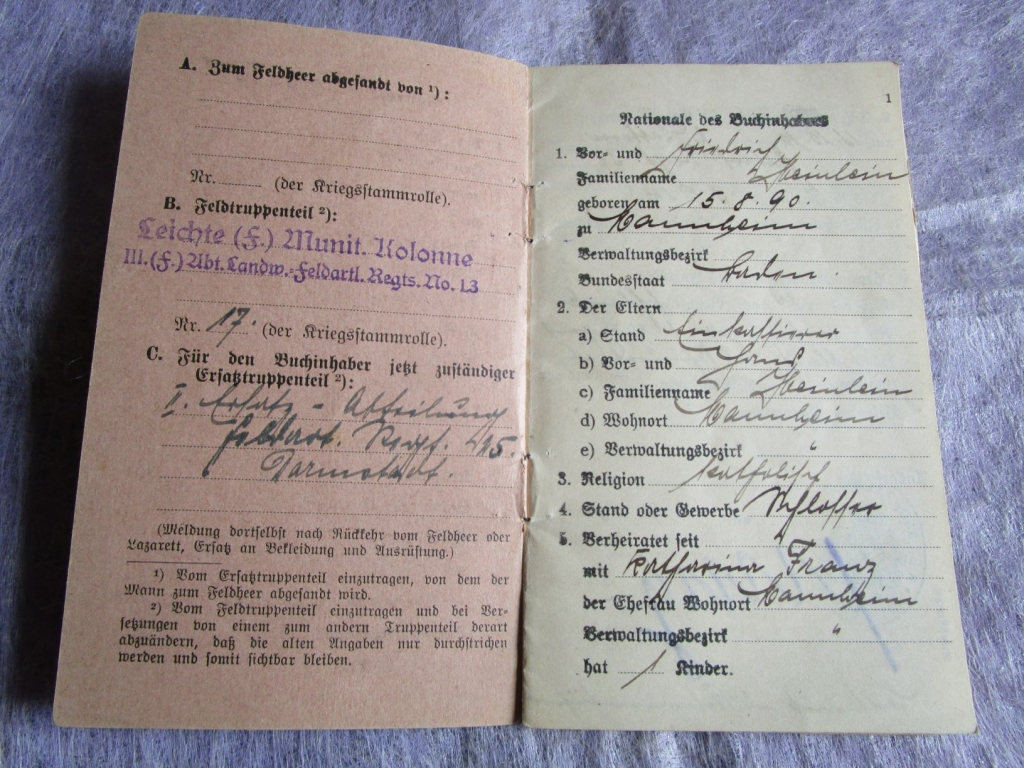 A. Zum Feldheer abgesandt von ¹):
Nr. (der Kriegsstammrolle).
B. Feldtruppenteil ²):
Leichte (F.) Munit. Kolonne
III.(F.) Abt. Landw.-Feldartl. Regts. No. 13
Nr. 17. (der Kriegsstammrolle).
C. Für den Buchinhaber jetzt zuständiger
Ersatztruppenteil ²):
II. Ersatz-Abteilung
Feldart. Regt.
Darmstadt.
(Meldung dortselbst nach Rückkehr vom Feldheer oder
Lazarett, Ersatz an Bekleidung und Ausrüstung.)
¹) Vom Ersatztruppenteil einzutragen, von dem der
Mann zum Feldheer abgesandt wird.
²) Vom Feldtruppenteil einzutragen und bei Ver-
setzungen von einem zum andern Truppenteil derart
abzuändern, daß die alten Angaben nur durchstrichen
werden und somit sichtbar bleiben.
1
Nationale des Buchinhabers
1. Vor- und Friedrich
Familienname Heinlein
geboren am 15. 8. 90.
zu Mannheim
Verwaltungsbezirk
Bundesstaat Baden.
2. Der Eltern
a) Stand Einkassierer
b) Vor- und
c) Familienname Heinlein
d) Wohnort Mannheim
e) Verwaltungsbezirk "
3. Religion katholisch
4. Stand oder Gewerbe Schlosser
5. Verheiratet seit
mit Katharina Franz
der Ehefrau Wohnort Mannheim
Verwaltungsbezirk "
hat 1 Kinder.